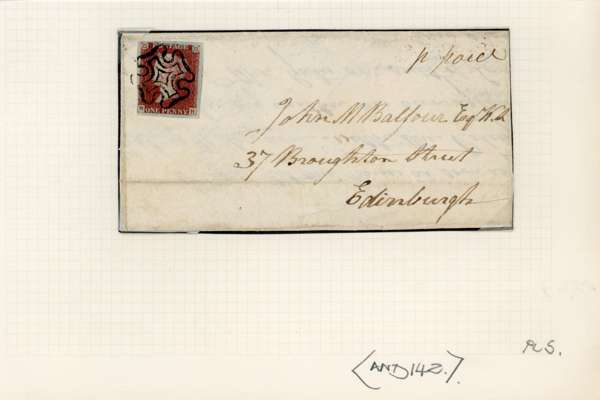 POSTAGE
ONE PENNY
p paid
John M Balfour Esq W.S
37 Broughton Street
Edinburgh
(AND 142.).